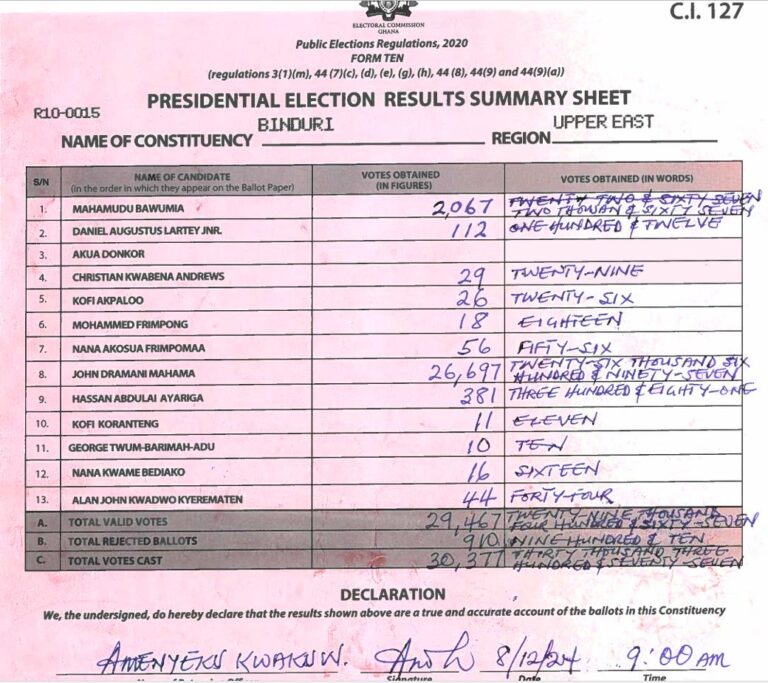 C.I. 127
ELECTORAL COMMISSION
GHANA
Public Elections Regulations, 2020
FORM TEN
(regulations 3(1)(m), 44 (7)(c), (d), (e), (g), (h), 44 (8), 44(9) and 44(9)(a))
PRESIDENTIAL ELECTION RESULTS SUMMARY SHEET
R10-0015
NAME OF CONSTITUENCY BINDURI REGION UPPER EAST
S/N NAME OF CANDIDATE (In the order in which they appear on the Ballot Paper) VOTES OBTAINED (IN FIGURES) VOTES OBTAINED (IN WORDS)
1. MAHAMUDU BAWUMIA 2,067 TWENTY TWO & SIXTY SEVEN
TWO THOUSAN & SIXTY SEVEN
2. DANIEL AUGUSTUS LARTEY JNR. 112 ONE HUNDRED & TWELVE
3. AKUA DONKOR
4. CHRISTIAN KWABENA ANDREWS 29 TWENTY-NINE
5. KOFI AKPALOO 26 TWENTY-SIX
6. MOHAMMED FRIMPONG 18 EIGHTEEN
7. NANA AKOSUA FRIMPOMAA 56 FIFTY-SIX
8. JOHN DRAMANI MAHAMA 26,697 TWENTY-SIX THOUSAND SIX
HUNDRED & NINETY-SEVEN
9. HASSAN ABDULAI AYARIGA 381 THREE HUNDRED & EIGHTY-ONE
10. KOFI KORANTENG 11 ELEVEN
11. GEORGE TWUM-BARIMAH-ADU 10 TEN
12. NANA KWAME BEDIAKO 16 SIXTEEN
13. ALAN JOHN KWADWO KYEREMATEN 44 FORTY-FOUR
A. TOTAL VALID VOTES 29,467 TWENTY-NINE THOUSAND
FOUR HUNDRED & SIXTY-SEVEN
B. TOTAL REJECTED BALLOTS 910 NINE HUNDRED & TEN
C. TOTAL VOTES CAST 30,377 THIRTY THOUSAND THREE
HUNDRED & SEVENTY-SEVEN
DECLARATION
We, the undersigned, do hereby declare that the results shown above are a true and accurate account of the ballots in this Constituency
AMENYEKU KWAKU W. 8/12/24 9:00 AM
Signature Date Time